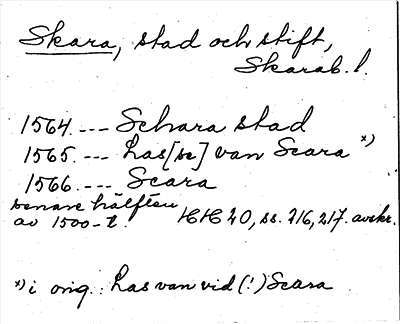 Skara, stad och stift,
Skarab. l.
1564 --- Schara stad
1565. --- Las[se] van Scara *)
1566. --- Scara
senare hälften
av 1500-t. HH 20, ss. 216, 217. avskr.
*) i orig.: Las van vid (!) Scara